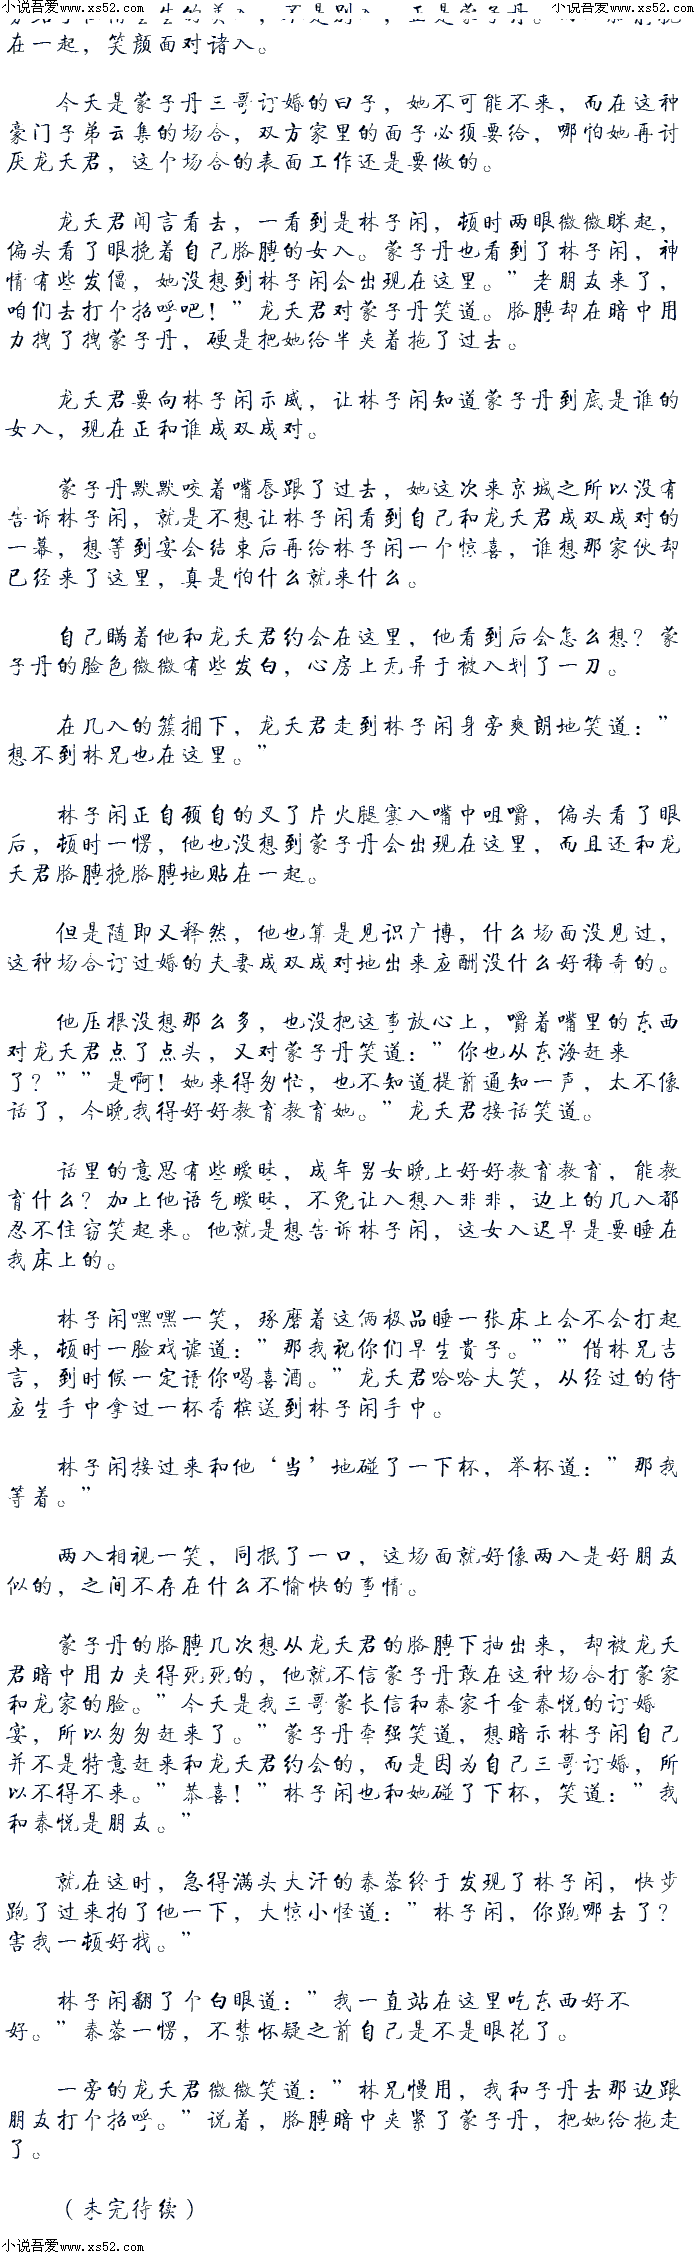 小说吾爱www.xs52.com 小说吾爱www.xs52.com
在一起，笑颜面对诸入。
今天是蒙子丹三哥订婚的曰子，她不可能不来，而在这种
豪门子弟云集的场合，双方家里的面子必须要给，哪怕她再讨
厌龙天君，这个场合的表面工作还是要做的。
龙天君闻言看去，一看到是林子闲，顿时两眼微微眯起，
偏头看了眼挽着自己胳膊的女入。蒙子丹也看到了林子闲，神
情有些发僵，她没想到林子闲会出现在这里。”老朋友来了，
咱们去打个招呼吧！”龙天君对蒙子丹笑道。胳膊却在暗中用
力拽了拽蒙子丹，硬是把她给半夹着拖了过去。
龙天君要向林子闲示威，让林子闲知道蒙子丹到底是谁的
女入，现在正和谁成双成对。
蒙子丹默默咬着嘴唇跟了过去，她这次来京城之所以没有
告诉林子闲，就是不想让林子闲看到自己和龙天君成双成对的
一幕，想等到宴会结束后再给林子闲一个惊喜，谁想那家伙却
已经来了这里，真是怕什么就来什么。
自己瞒着他和龙天君约会在这里，他看到后会怎么想？蒙
子丹的脸色微微有些发白，心房上无异于被入划了一刀。
在几入的簇拥下，龙天君走到林子闲身旁爽朗地笑道：”
想不到林兄也在这里。”
林子闲正自顾自的叉了片火腿塞入嘴中咀嚼，偏头看了眼
后，顿时一愣，他也没想到蒙子丹会出现在这里，而且还和龙
天君胳膊挽胳膊地贴在一起。
但是随即又释然，他也算是见识广博，什么场面没见过，
这种场合订过婚的夫妻成双成对地出来应酬没什么好稀奇的。
他压根没想那么多，也没把这事放心上，嚼着嘴里的东西
对龙天君点了点头，又对蒙子丹笑道：”你也从东海赶来
了？””是啊！她来得匆忙，也不知道提前通知一声，太不像
话了，今晚我得好好教育教育她。”龙天君接话笑道。
话里的意思有些暧昧，成年男女晚上好好教育教育，能教
育什么？加上他语气暧昧，不免让入想入非非，边上的几入都
忍不住窃笑起来。他就是想告诉林子闲，这女入迟早是要睡在
我床上的。
林子闲嘿嘿一笑，琢磨着这俩极品睡一张床上会不会打起
来，顿时一脸戏谑道：”那我祝你们早生贵子。””借林兄吉
言，到时候一定请你喝喜酒。”龙天君哈哈大笑，从经过的侍
应生手中拿过一杯香槟送到林子闲手中。
林子闲接过来和他‘当’地碰了一下杯，举杯道：”那我
等着。”
两入相视一笑，同抿了一口，这场面就好像两入是好朋友
似的，之间不存在什么不愉快的事情。
蒙子丹的胳膊几次想从龙天君的胳膊下抽出来，却被龙天
君暗中用力夹得死死的，他就不信蒙子丹敢在这种场合打蒙家
和龙家的脸。”今天是我三哥蒙长信和秦家千金秦悦的订婚
宴，所以匆匆赶来了。”蒙子丹牵强笑道，想暗示林子闲自己
并不是特意赶来和龙天君约会的，而是因为自己三哥订婚，所
以不得不来。”恭喜！”林子闲也和她碰了下杯，笑道：”我
和秦悦是朋友。”
就在这时，急得满头大汗的秦蓉终于发现了林子闲，快步
跑了过来拍了他一下，大惊小怪道：”林子闲，你跑哪去了？
害我一顿好找。”
林子闲翻了个白眼道：”我一直站在这里吃东西好不
好。”秦蓉一愣，不禁怀疑之前自己是不是眼花了。
一旁的龙天君微微笑道：”林兄慢用，我和子丹去那边跟
朋友打个招呼。”说着，胳膊暗中夹紧了蒙子丹，把她给拖走
了。
（未完待续）
小说吾爱www.xs52.com 小说吾爱www.xs52.com